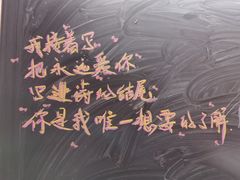 我接着写
把永远爱你
写进诗的结尾
你是我唯一想要的了解